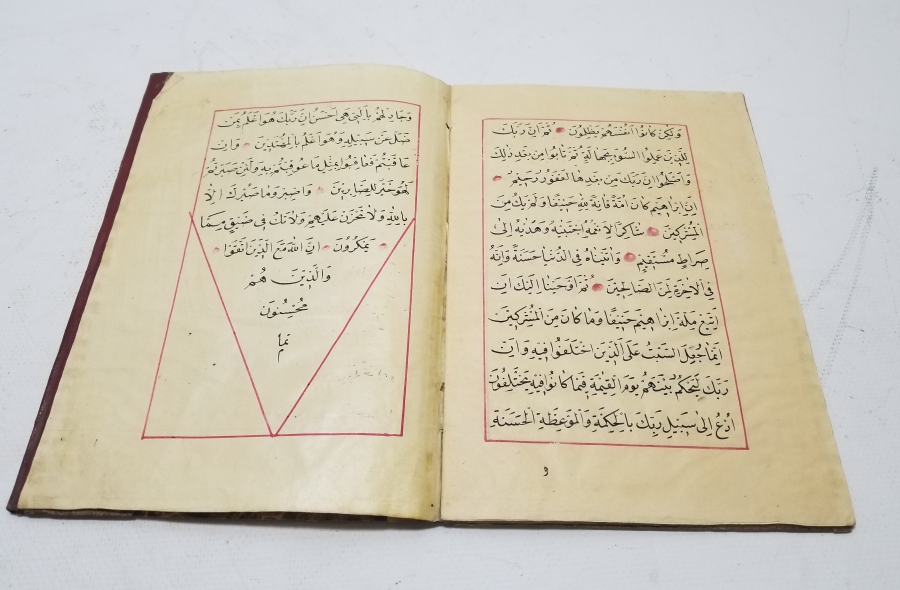 وَلٰكِنْ كَانُوا اَنْفُسَهُمْ يَظْلِمُونَ ثُمَّ اِنَّ رَبَّكَ
لِلَّذِينَ عَمِلُوا السُّوءَ بِجَهَالَةٍ ثُمَّ تَابُوا مِنْ بَعْدِ ذٰلِكَ
وَاَصْلَحُوا اِنَّ رَبَّكَ مِنْ بَعْدِهَا لَغَفُورٌ رَحِيمٌ
اِنَّ اِبْرٰهِيمَ كَانَ اُمَّةً قَانِتًا لِلّٰهِ حَنِيفًا وَلَمْ يَكُ مِنَ
الْمُشْرِكِينَ شَاكِرًا لِاَنْعُمِهِ اجْتَبٰيهُ وَهَدٰيهُ اِلٰى
صِرَاطٍ مُسْتَقِيمٍ وَاٰتَيْنَاهُ فِي الدُّنْيَا حَسَنَةً وَاِنَّهُ
فِي الْاٰخِرَةِ لَمِنَ الصَّالِحِينَ ثُمَّ اَوْحَيْنَا اِلَيْكَ اَنِ
اتَّبِعْ مِلَّةَ اِبْرٰهِيمَ حَنِيفًا وَمَا كَانَ مِنَ الْمُشْرِكِينَ
اِنَّمَا جُعِلَ السَّبْتُ عَلَى الَّذِينَ اخْتَلَفُوا فِيهِ وَاِنَّ
رَبَّكَ لَيَحْكُمُ بَيْنَهُمْ يَوْمَ الْقِيٰمَةِ فِيمَا كَانُوا فِيهِ يَخْتَلِفُونَ
اُدْعُ اِلٰى سَبِيلِ رَبِّكَ بِالْحِكْمَةِ وَالْمَوْعِظَةِ الْحَسَنَةِ
وَجَادِلْهُمْ بِالَّتِي هِيَ اَحْسَنُ اِنَّ رَبَّكَ هُوَ اَعْلَمُ بِمَنْ
ضَلَّ عَنْ سَبِيلِهِ وَهُوَ اَعْلَمُ بِالْمُهْتَدِينَ وَاِنْ
عَاقَبْتُمْ فَعَاقِبُوا بِمِثْلِ مَا عُوقِبْتُمْ بِهِ وَلَئِنْ صَبَرْتُمْ
لَهُوَ خَيْرٌ لِلصَّابِرِينَ وَاصْبِرْ وَمَا صَبْرُكَ اِلَّا
بِاللّٰهِ وَلَا تَحْزَنْ عَلَيْهِمْ وَلَا تَكُ فِي ضَيْقٍ مِمَّا
يَمْكُرُونَ اِنَّ اللّٰهَ مَعَ الَّذِينَ اتَّقَوْا
وَالَّذِينَ هُمْ
مُحْسِنُونَ